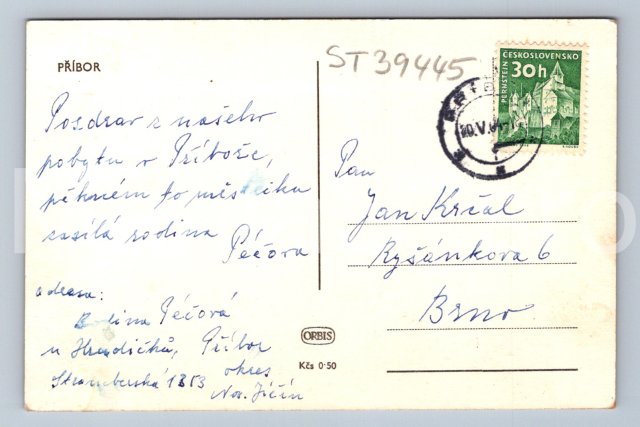 PŘÍBOR
ST 39445
ČESKOSLOVENSKO
30h
PERNŠTEJN
Pozdrav z našeho
pobytu v Příboře,
pěkném to městečku
zasílá rodina
Péčova
adresa:
Péčová
u Hrudičků, Příbor
Štramberská 1353
okres
Nov. Jičín
ORBIS
Kčs 0·50
Pan
Jan Krčál
Ryšánkova 6
Brno